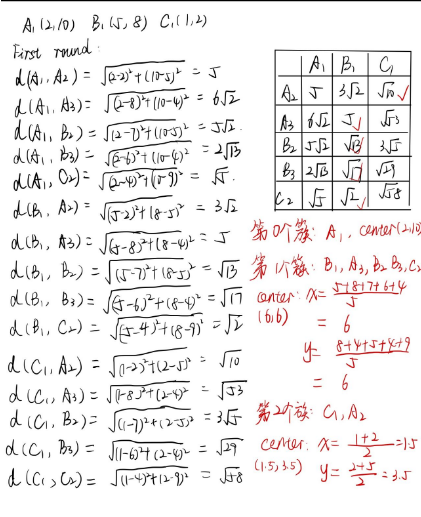 A₁(2,10) B₁(5,8) C₁(1,2)
First round:
d(A₁, A2) = √((2-2)²+(10-5)²) = 5
d(A₁, A3) = √((2-8)²+(10-4)²) = 6√2
d(A₁, B₂) = √((2-7)²+(10-5)²) = 5√2.
d(A₁, B₃) = √((2-6)²+(10-4)²) = 2√13
d(A₁, C₂) = √((2-4)²+(10-9)²) = √5.
d(B₁, A2) = √((5-2)²+(8-5)²) = 3√2
d(B₁, A3) = √((5-8)²+(8-4)²) = 5
d(B₁, B₂) = √((5-7)²+(8-5)²) = √13
d(B₁, B₃) = √((5-6)²+(8-4)²) = √17
d(B₁, C₂) = √((5-4)²+(8-9)²) = √2
d(C₁, A2) = √((1-2)²+(2-5)²) = √10
d(C₁, A3) = √((1-8)²+(2-4)²) = √53
d(C₁, B₂) = √((1-7)²+(2-5)²) = 3√5
d(C₁, B₃) = √((1-6)²+(2-4)²) = √29
d(C₁, C₂) = √((1-4)²+(2-9)²) = √58
A₁ B₁ C₁
A₂ 5 3√2 √10 ✓
A₃ 6√2 5 ✓ √53
B₂ 5√2 √13 ✓ 3√5
B₃ 2√13 √17 ✓ √29
C₂ √5 √2 ✓ √58
第0个簇: A₁, center(2,10)
第1个簇: B₁, A₃, B₂ B₃, C₂
center: x = (5+8+7+6+4)/5
(6,6) = 6
y = (8+4+5+4+9)/5
= 6
第2个簇: C₁, A₂
center: x = (1+2)/2 = 1.5
(1.5, 3.5) y = (2+5)/2 = 3.5